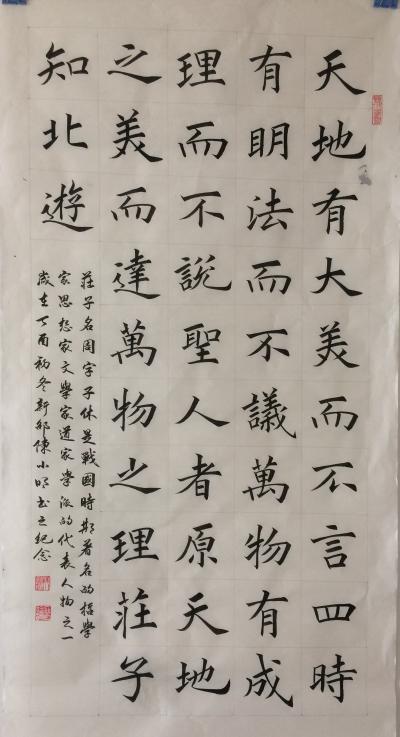 天地有大美而不言四時
有明法而不議萬物有成
理而不說聖人者原天地
之美而達萬物之理莊子
知北遊
莊子名周字子休是戰國時期著名的哲學
家思想家文學家道家學派的代表人物之一
歲在丁酉初冬新邨陳小明書之紀念